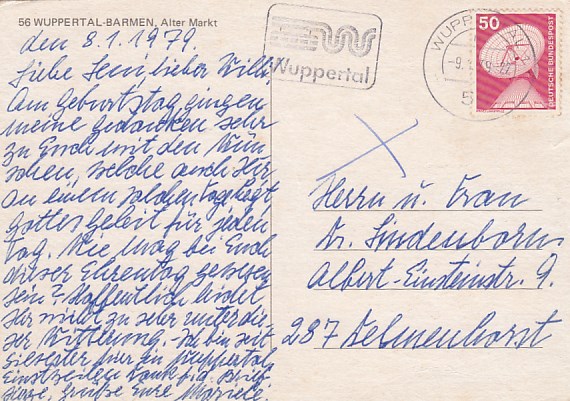 56 WUPPERTAL-BARMEN, Alter Markt
den 8.1.1979.
Liebe lieber Willi
Am Geburtstag gingen
meine Gedanken sehr
zu Euch mit den Wün
schen, welche auch Ihr
an einem solchen Tag hegt
Gottes Geleit für jeden
Tag. Wie mag bei Euch
dieser Ehrentag gewesen
sein? Hoffentlich leidet
Ihr nicht zu sehr unter die
ser Witterung. Ich bin seit
Silvester hier in Wuppertal
Einstweilen Dank f. d. Brief
Grüße Eure
Wuppertal
WUPPERTAL
50
DEUTSCHE BUNDESPOST
Herrn u. Frau
Dr. Lindenborn
Albert-Einsteinstr. 9.
287 Delmenhorst